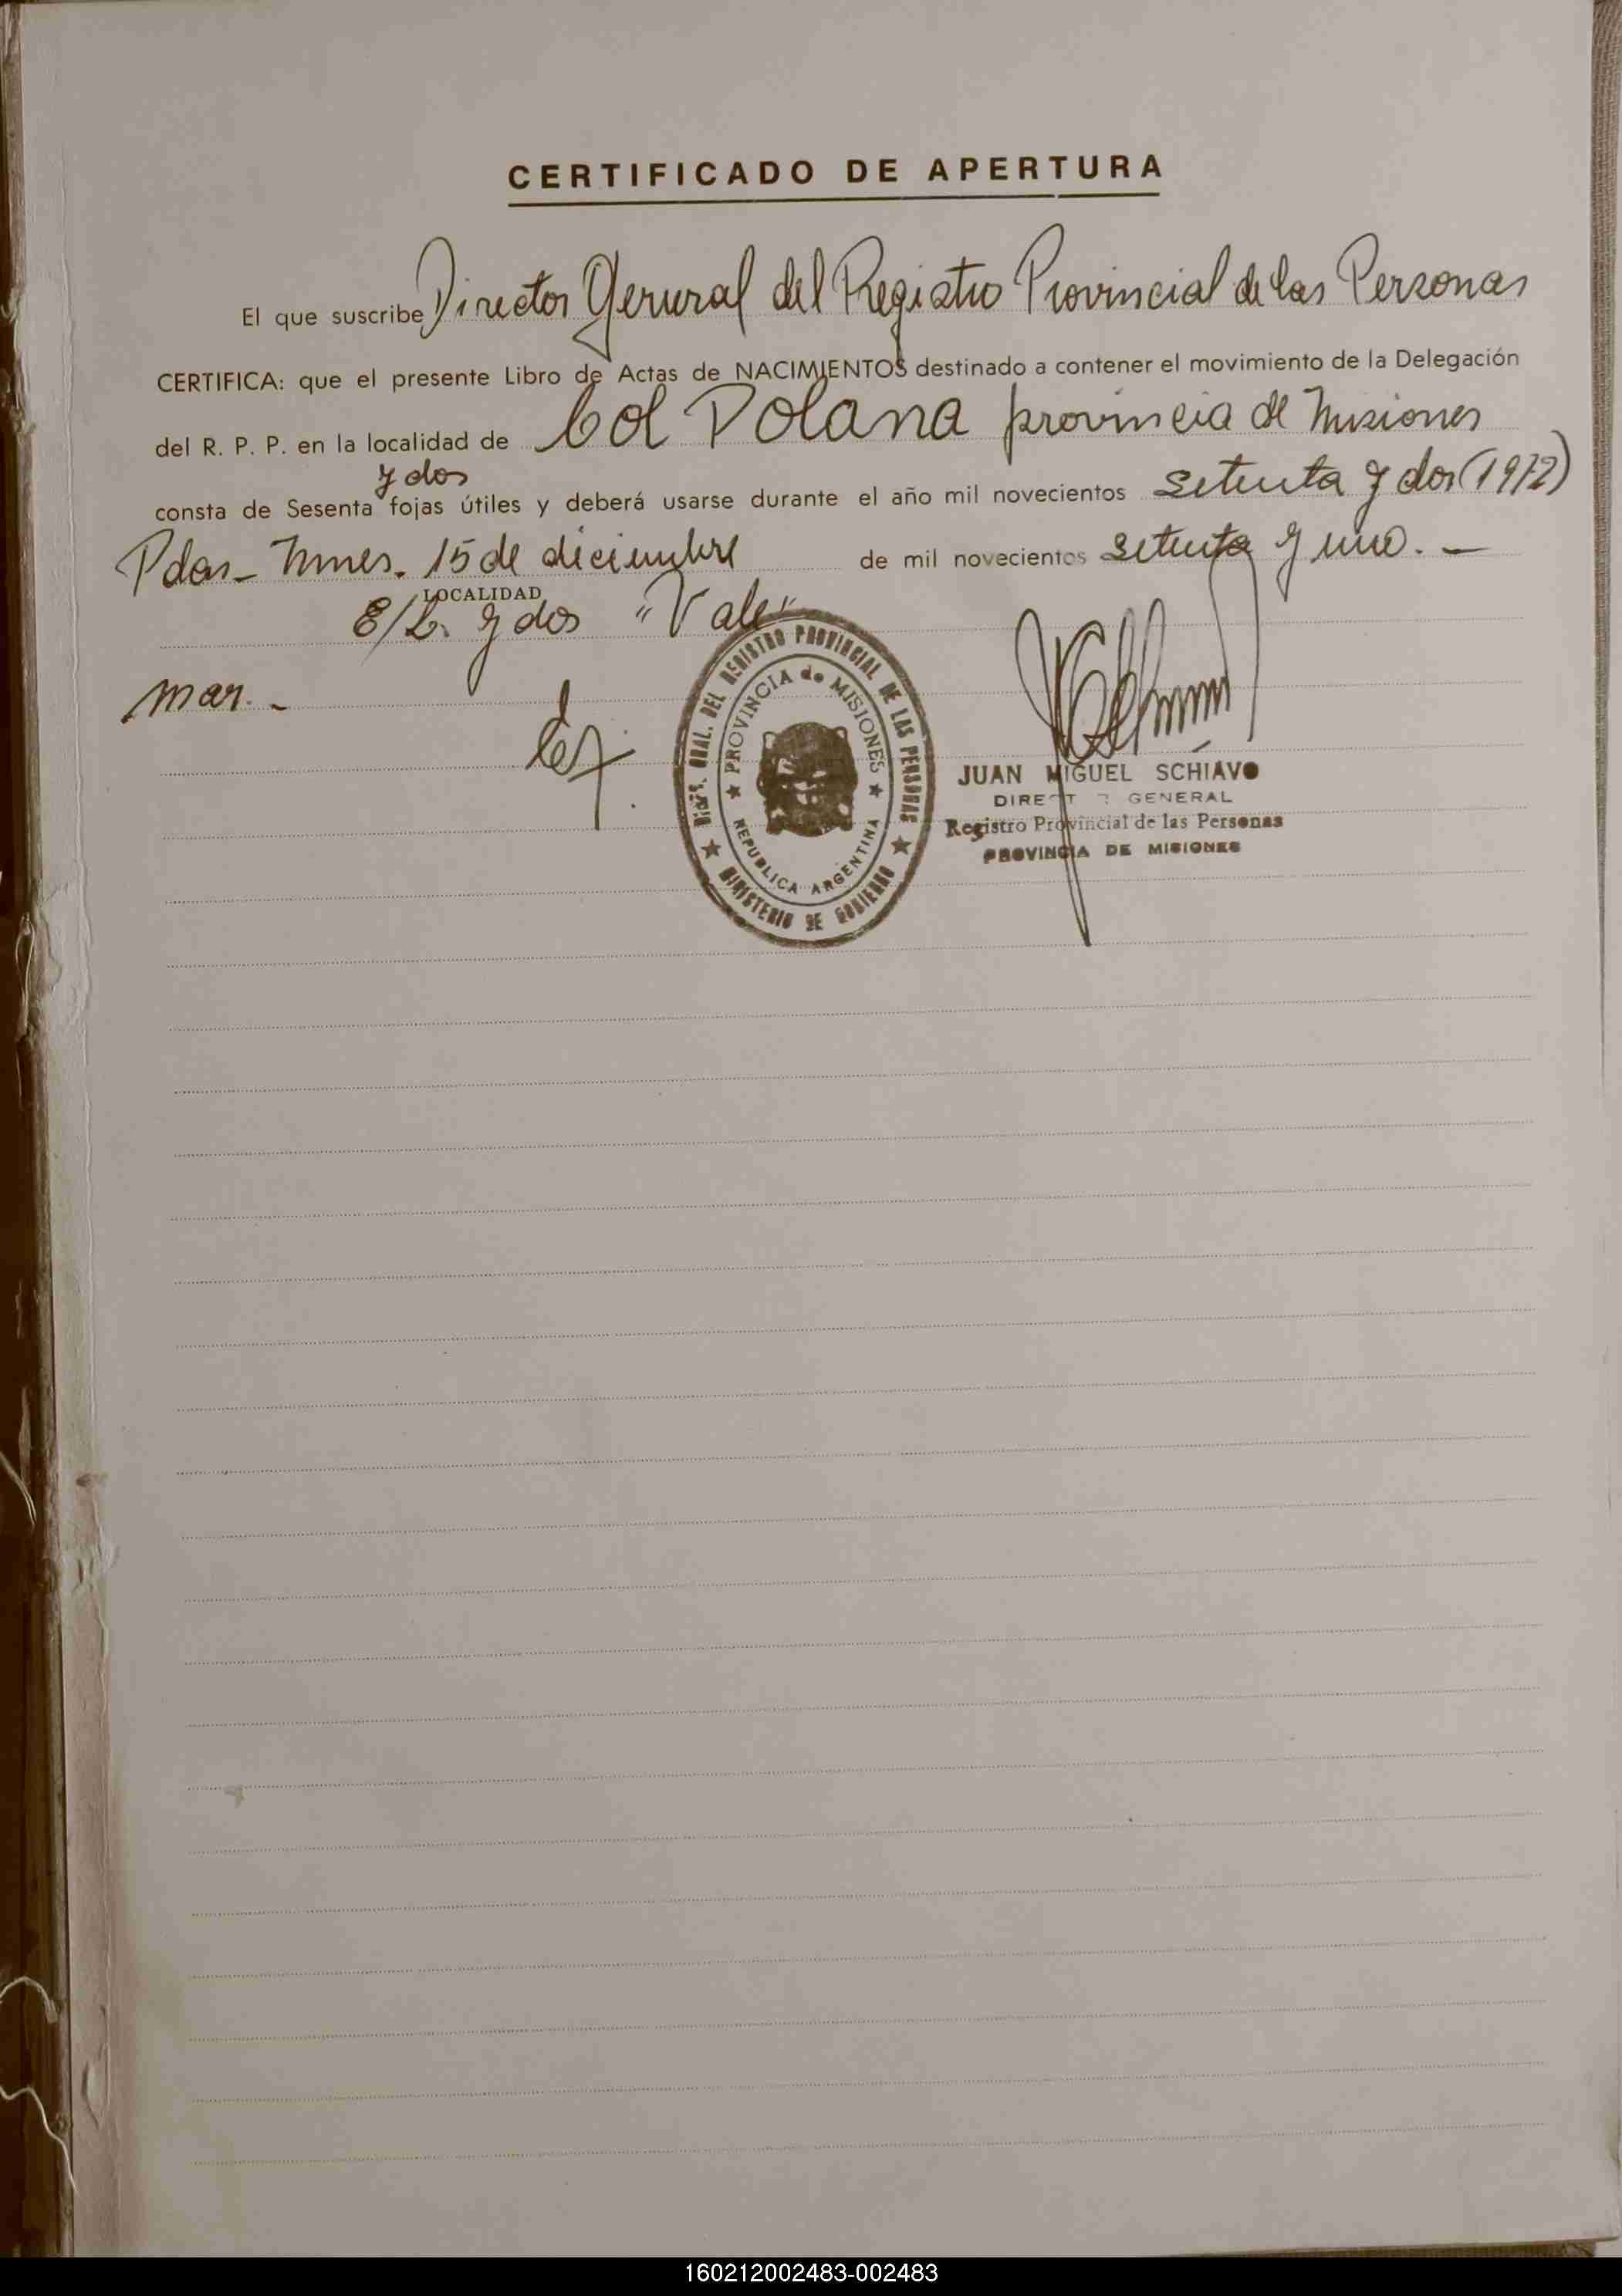 CERTIFICADO DE APERTURA
El que suscribe Director General del Registro Provincial de las Personas
CERTIFICA: que el presente Libro de Actas de NACIMIENTOS destinado a contener el movimiento de la Delegación
del R. P. P. en la localidad de Col Polana provincia de Misiones
y dos
consta de Sesenta fojas útiles y deberá usarse durante el año mil novecientos setenta y dos (1972)
Pdas- Mnes. 15 de diciembre de mil novecientos setenta y uno. -
LOCALIDAD
E/L. y dos "Vale"
mar. -
DIREC. GRAL. DEL REGISTRO PROVINCIAL DE LAS PERSONAS
PROVINCIA de MISIONES
REPUBLICA ARGENTINA
MINISTERIO DE GOBIERNO
JUAN MIGUEL SCHIAVO
DIRECTOR GENERAL
Registro Provincial de las Personas
PROVINCIA DE MISIONES
160212002483-002483